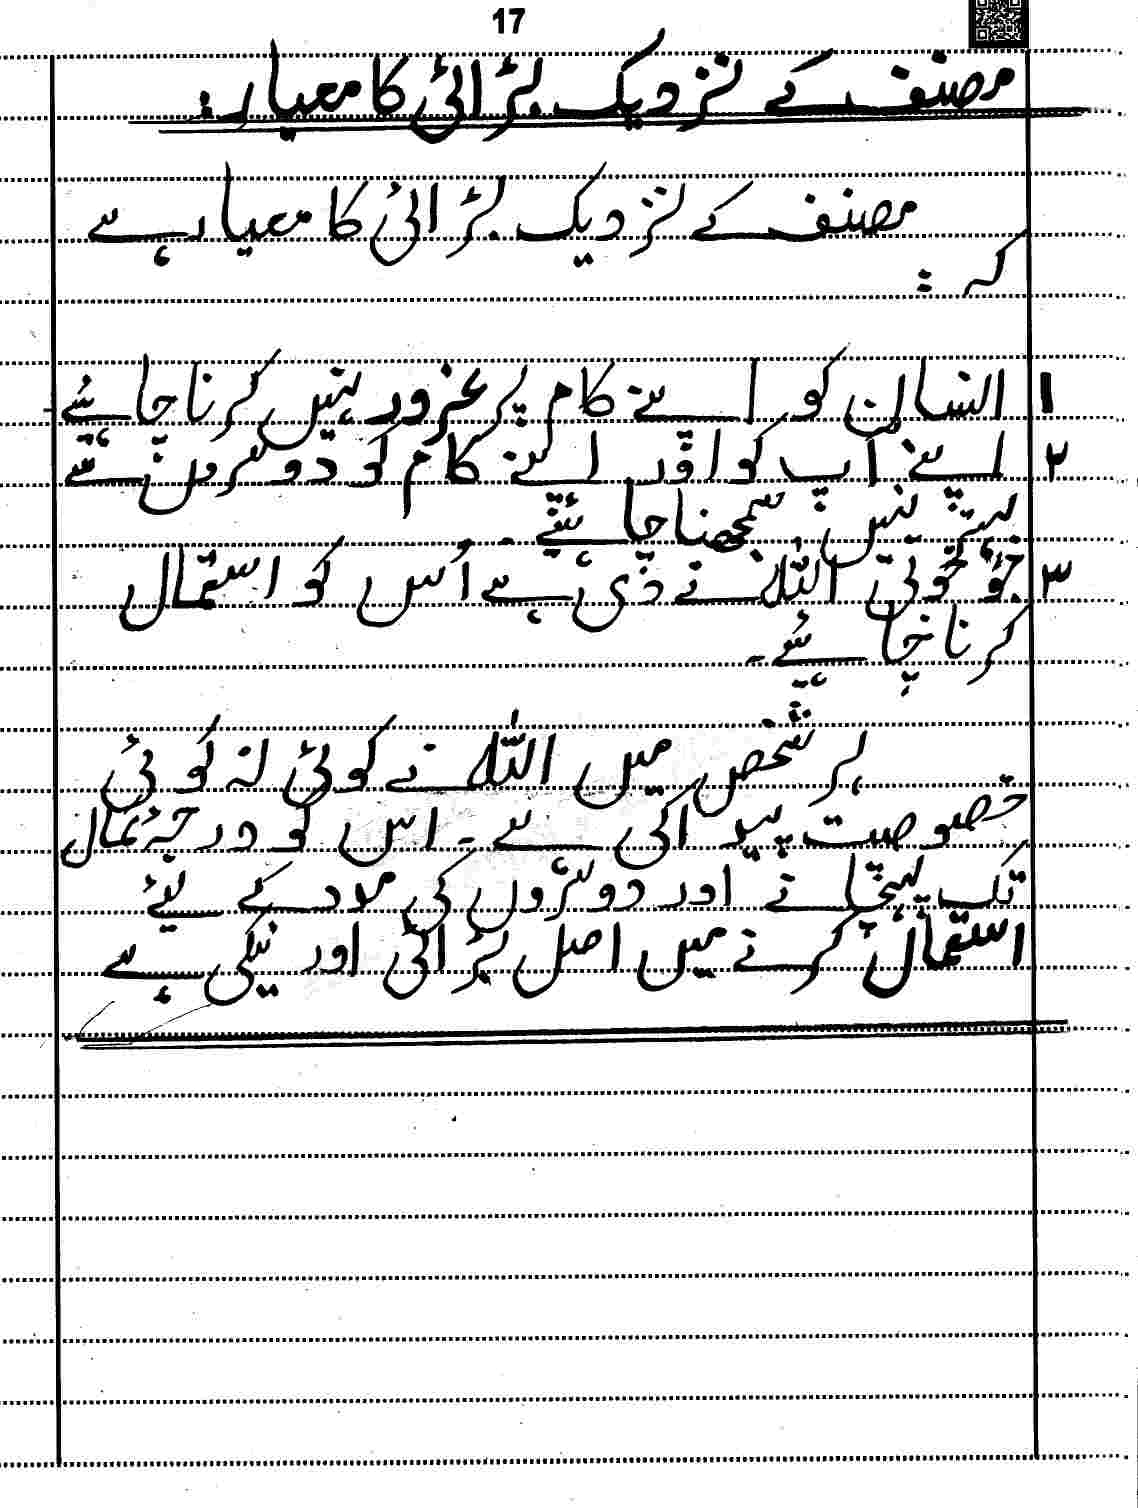 17
مصنف کے نزدیک بڑائی کا معیار:
مصنف کے نزدیک بڑائی کا معیار ہے
کہ :
۱ انسان کو اپنے کام پر غرور نہیں کرنا چاہئے
۲ اپنے آپ کو اور اپنے کام کو دوسروں سے
بہتر نہیں سمجھنا چاہئے۔
۳ جو خوبی اللہ نے دی ہے اُس کو استعمال
کرنا چاہیئے۔
ہر شخص میں اللہ نے کوئی نہ کوئی
خصوصیت پیدا کی ہے۔ اس کو درجۂ کمال
تک پہنچانے اور دوسروں کی مدد کے لیئے
استعمال کرنے میں اصل بڑائی اور نیکی ہے